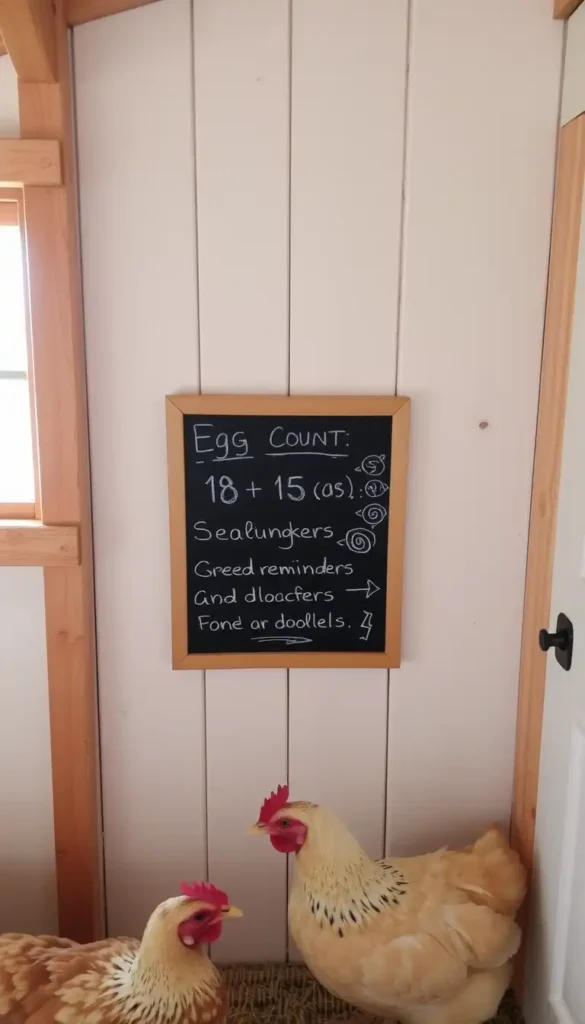 Egg Count:
18 + 15 (as).
Sealungkers
Greed reminders
and dloacfers
Fond ar doollels.